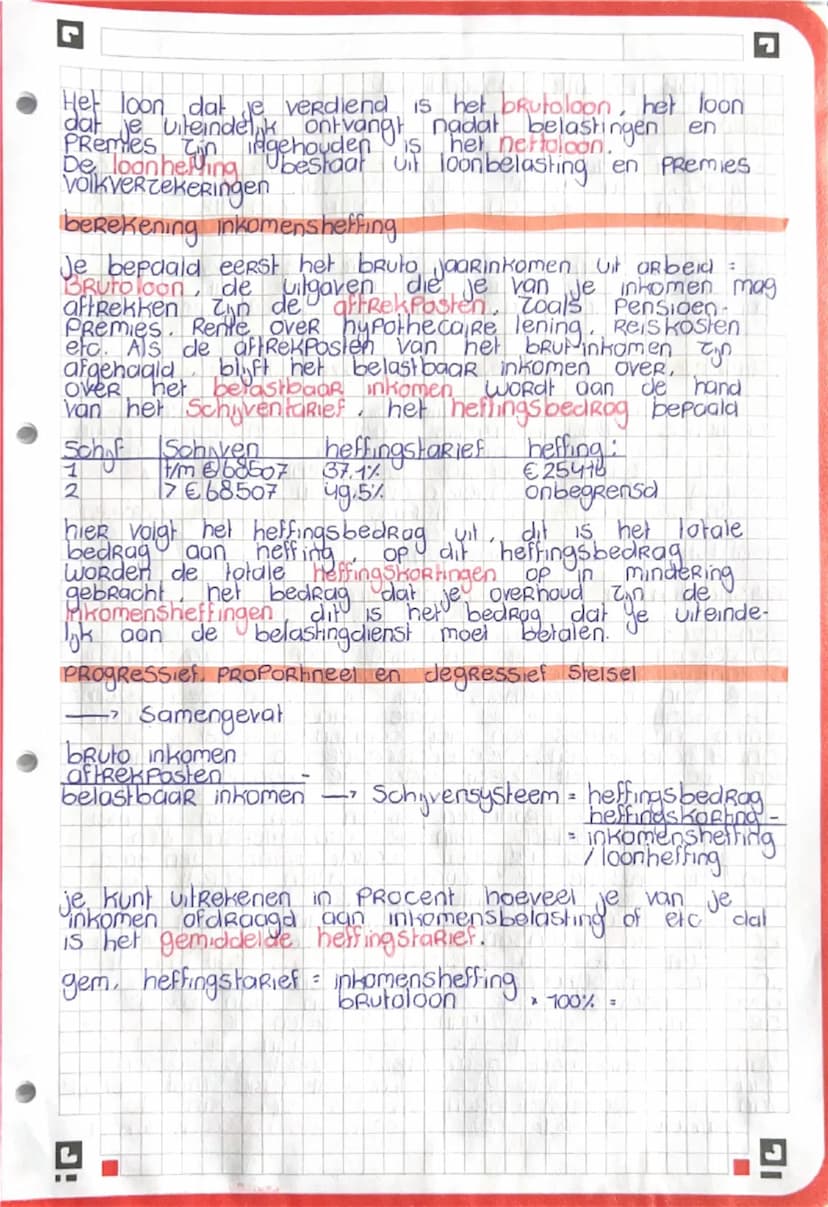 Het loon dat je verdiend is het brutoloon, het loon
dat je uiteindelijk ontvangt nadat belastingen en
premies zijn ingehouden is het nettoloon.
De loonheffing bestaat uit loonbelasting en premies
volkverzekeringen
berekening inkomensheffing
Je bepaald eerst het bruto jaarinkomen uit arbeid =
Brutoloon, de uitgaven die je van je inkomen mag
aftrekken zijn de aftrekposten, zoals pensioen-
premies. Rente over hypothecaire lening, Reiskosten
etc. Als de aftrekposten van het brut inkomen zijn
afgehaald, blijft het belastbaar inkomen over,
over het belastbaar inkomen wordt aan de hand
van het Schijventarief, het heffingsbedrag bepaald
Schijf Schijven heffingstarief heffing:
1 t/m € 68507 37.1% € 25416
2 > € 68507 49,5% onbegrensd
hier volgt het heffingsbedrag uit, dit is het totale
bedrag aan heffing, op dit heffingsbedrag
worden de totale heffingskortingen op in mindering
gebracht, het bedrag dat je overhoud zijn de
inkomensheffingen, dit is het bedrag dat je uiteinde-
lijk aan de belastingdienst moet betalen.
Progressief, proportineel en degressief Stelsel
→ Samengevat
bruto inkomen
aftrekposten -
belastbaar inkomen → Schijvensysteem = heffingsbedrag
heffingskorting -
= inkomensheffing
/ loonheffing
je kunt uitrekenen in procent hoeveel je van je
inkomen afdraagd aan inkomensbelasting of etc dat
is het gemiddelde heffingstarief.
gem. heffingstarief = inkomensheffing
brutoloon × 100% =